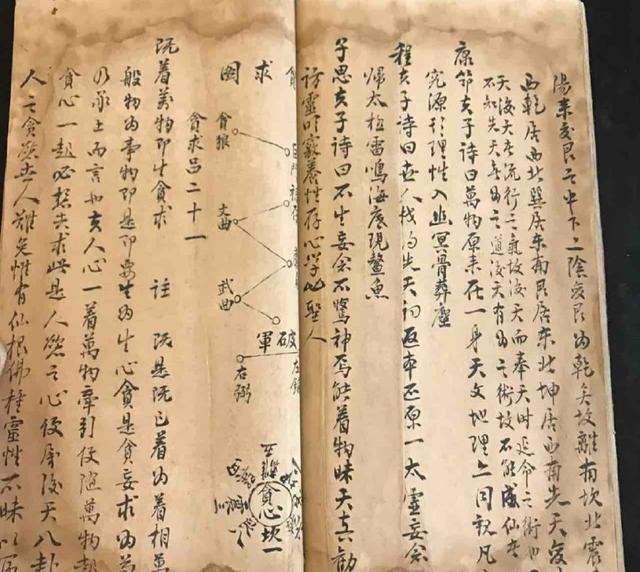 陽来交艮之中下二陰交艮為乾矣故離南坎北震
西乾居西北巽居东南艮居东北坤居西南先天变
天後天者流行之氣故後天而奉天時延命之術也
不知先天者為之道後天有為之術故不能成仙者
康節夫子詩曰萬物原来在一身天文地理亠同親凡
究源形理性入幽冥骨葬塵
程夫子詩曰世人找为先天初返本还原一太灵妄念
歸太极雷鳴海底現鰲魚
子思夫子詩曰不生妄念不驚神焉能着物昧天真勸
訪靈明寂養性存心学此聖人
貪求圖
貪狼
文曲
武曲
破軍
右弼
貪心坎一
貪求品二十一
既着萬物即生貪求 註 既是既已着為着相萬
般物為事物即是即要生為生心貪是貪妄求為
乃承上而言如夫人心一着萬物牽引使隨萬物起
貪心一起必想去求此是人慾之心使
後天八卦
人之貪慾世人難免惟有仙根佛種靈性不昧以